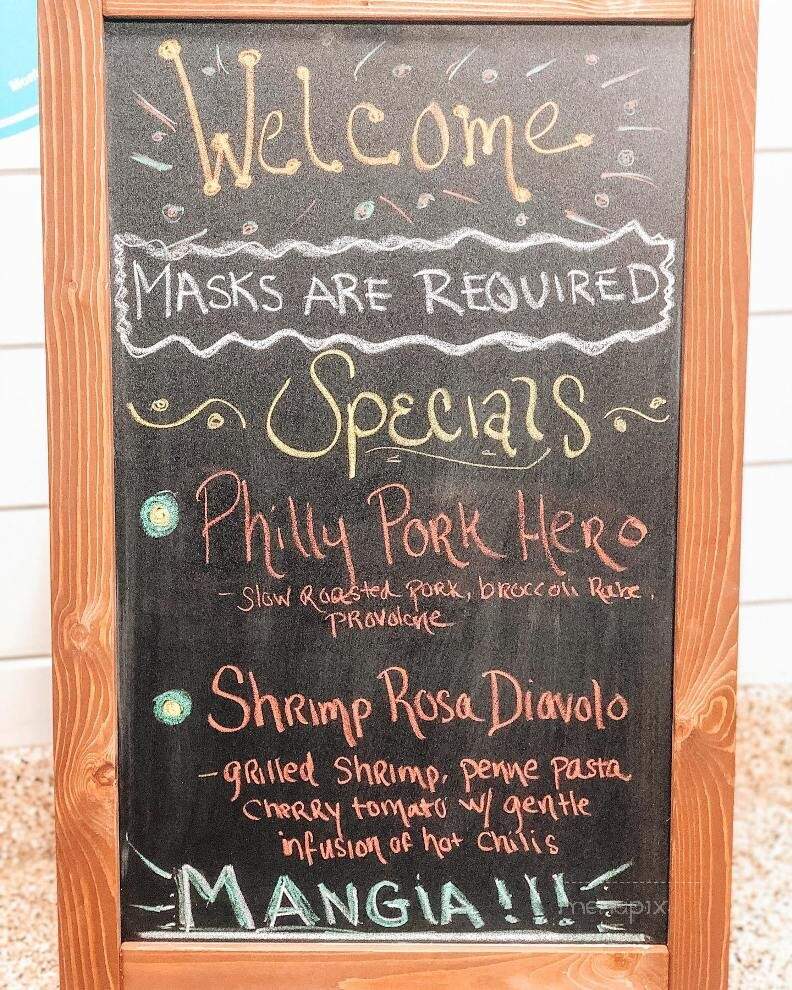 Welcome
MASKS ARE REQUIRED
Specials
Philly Pork Hero
- Slow Roasted Pork, broccoli Rabe,
Provolone
Shrimp Rosa Diavolo
- grilled Shrimp, penne pasta
Cherry tomato w/ gentle
infusion of hot Chilis
MANGIA!!!
menupix